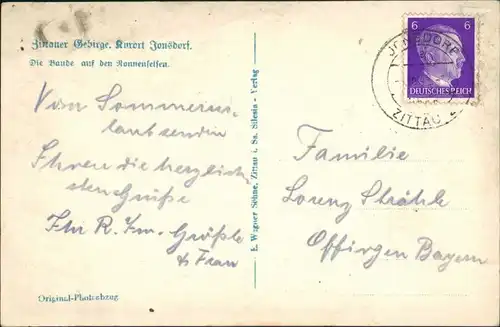 Zittauer Gebirge. Kurort Jonsdorf.
Die Baude auf den Nonnenfelsen.
Von Sommerur-
laub senden
Ihnen die herzlich-
sten Grüße
Ihr R. Größle
& Frau
Original-Photoabzug
E. Wagner Söhne, Zittau i. Sa. Silesia - Verlag
6 6
DEUTSCHES REICH
JONSDORF
ZITTAU 2
Familie
Lorenz Strähle
Offingen Bayern